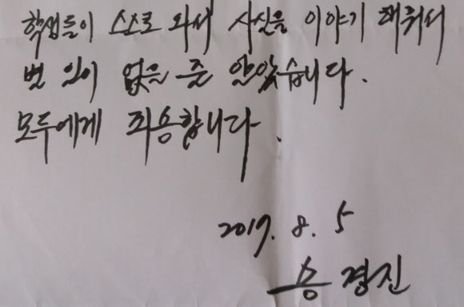 학생들이 스스로 와서 사실을 이야기 해줘서
별 일이 없을 줄 알았습니다.
모두에게 죄송합니다.
2017. 8. 5
송 경진